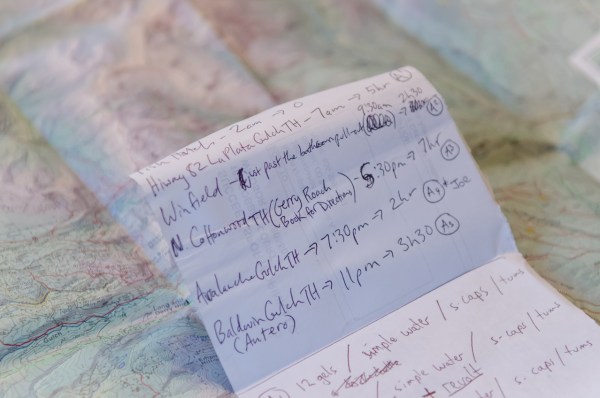 - 2am → 0
Hiway 82 La Plata Gulch TH - 7am → 5hr (A1)
9:30am 2h30
Winfield - just past the bathroom pull-out → (A2)
N Cottonwood TH (Gerry Roach Book for Directions) - 5:30pm → 7hr (A3)
Avalanche Gulch TH → 7:30pm → 2hr (A4) * Joe
Baldwin Gulch TH → 11pm → 3h30 (A5)
(Antero)
12 gels / simple water / s-caps / tums
simple water / s-caps / tums
water / s-caps / tums